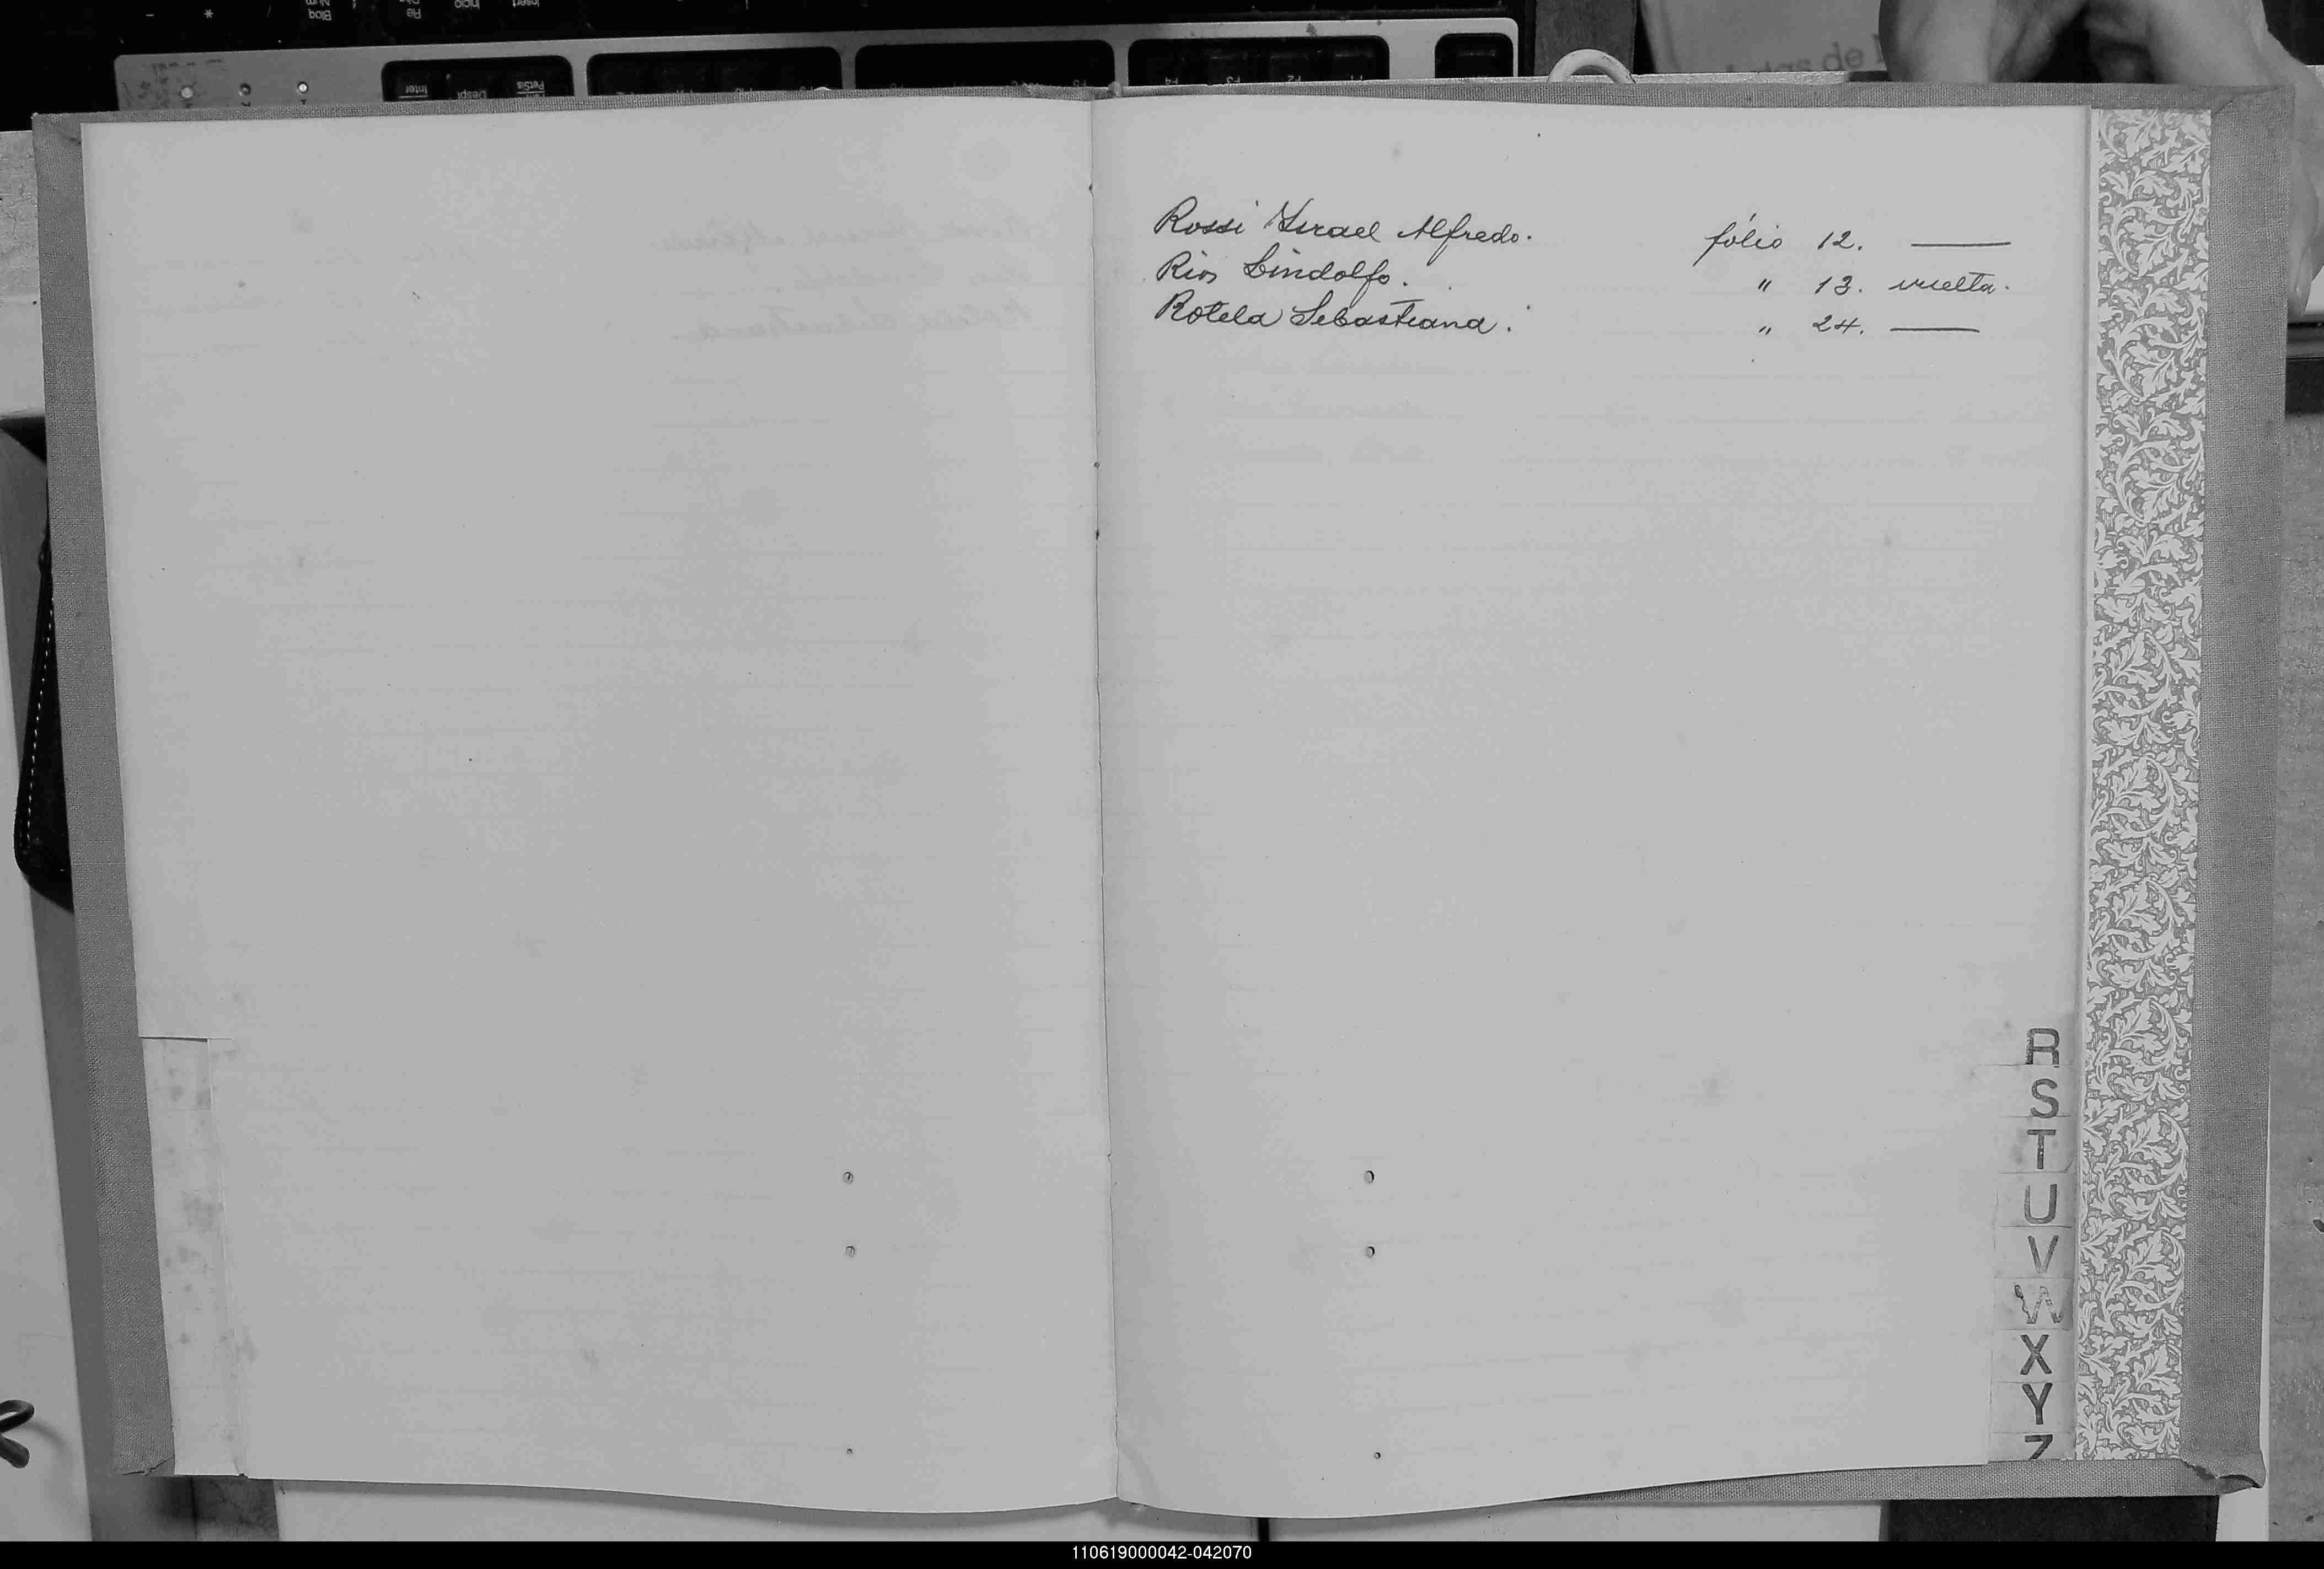 Rossi Israel Alfredo. folio 12. ———
Rios Lindolfo. " 13. vuelta.
Rotela Sebastiana. " 24. ———
R
S
T
U
V
W
X
Y
Z
110619000042-042070